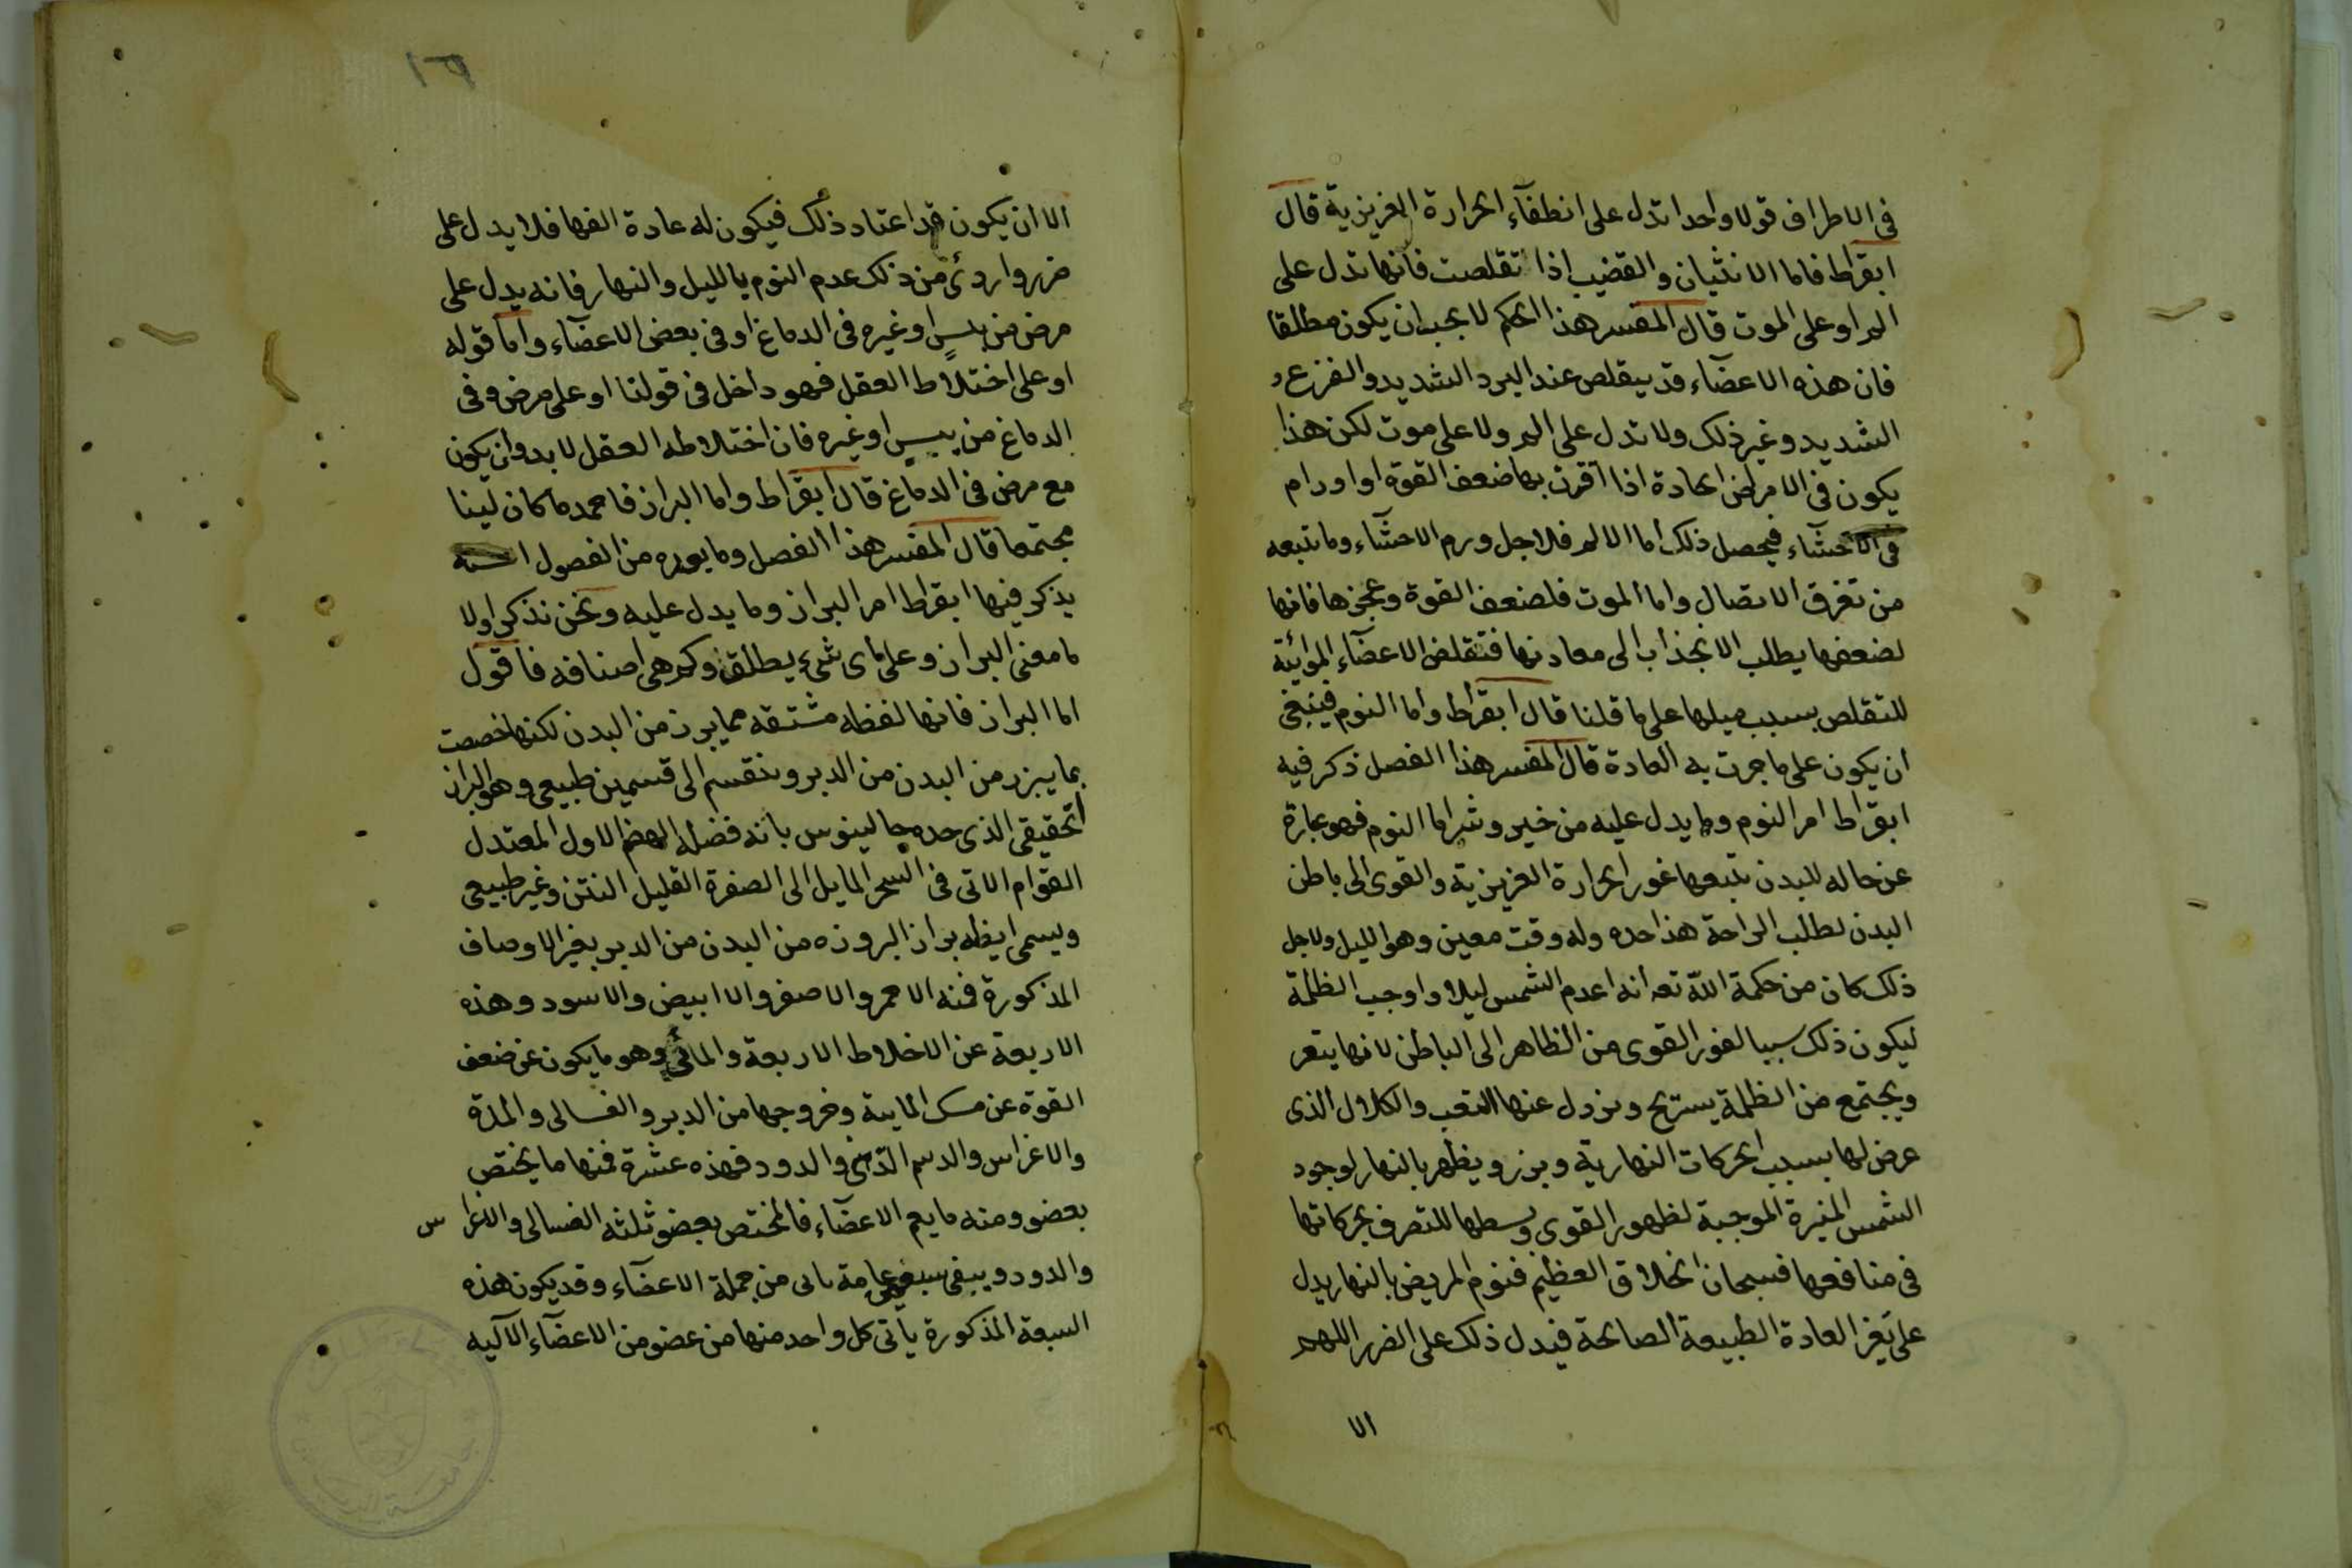 فى الاطراف قولا واحدا تدل على انطفآء الحرارة الغريزية قال
ابقراط فاما الانثيان والقضيب اذا تقلصت فانها تدل على
الم او على الموت قال المفسر هذا الحكم لا يجب ان يكون مطلقا
فان هذه الاعضآء قد يتقلص عند البرد الشديد والفزع
الشديد وغير ذلك ولا تدل على الم ولا على موت لكن هذا
يكون فى الامراض الحادة اذا اقرن بها ضعف القوة او اورام
فى الاحشآء فيحصل ذلك اما الالم فلاجل ورم الاحشآء وما تتبعه
من تفرق الاتصال واما الموت فلضعف القوة وعجزها فانها
لضعفها يطلب الانجذاب الى معادنها فتقلص الاعضآء المواتية
للتقلص بسبب ميلها على ما قلنا قال ابقراط واما النوم فينبغى
ان يكون على ما جرت به العادة قال المفسر هذا الفصل ذكر فيه
ابقراط امر النوم وما يدل عليه من خير وشر اما النوم فهو عبارة
عن حاله للبدن تتبعها غور الحرارة الغريزية والقوى الى باطن
البدن لطلب الراحة هذا حده وله وقت معين وهو الليل ولاجل
ذلك كان من حكمة الله تعه انه اعدم الشمس ليلا واوجب الظلمة
ليكون ذلك سببا لغور القوى من الظاهر الى الباطن لانها
ويجتمع من الظلمة يستريح ويزول عنها التعب والكلال الذى
عرض لها بسبب الحركات النهارية ويبرز ويظهر بالنهار لوجود
الشمس المنيرة الموجبة لظهور القوى وبسطها للتصرف بحركاتها
فى منافعها فسبحان الخلاق العظيم فنوم المريض بالنهار يدل
على تغير العادة الطبيعة الصالحة فيدل ذلك على الضرر اللهم
الا
١٦٦
الا ان يكون قد اعتاد ذلك فيكون له عادة الفها فلا يدل على
ضرر واردئ من ذلك عدم النوم بالليل والنهار فانه يدل على
مرض من يبس او غيره فى الدماغ او فى بعض الاعضآء واما قوله
او على اختلاط العقل فهو داخل فى قولنا او على مرض فى
الدماغ من يبس او غيره فان اختلاطه العقل لا بد وان يكون
مع مرض فى الدماغ قال ابقراط واما البراز فاحمده ما كان لينا
مجتمعا قال المفسر هذا الفصل وما بعده من الفصول
يذكر فيها ابقراط امر البراز وما يدل عليه ونحن نذكر اولا
ما معنى البراز وعلى اى شىء يطلق وكم هى اصنافه فاقول
اما البراز فانها لفظه مشتقه مما يبرز من البدن لكنها خصصت
بما يبرز من البدن من الدبر وينقسم الى قسمين طبيعى وهو البراز
الحقيقى الذى حده جالينوس بانه فضله الهضم الاول المعتدل
القوام الاتى فى السحر المايل الى الصفرة القليل النتن وغير طبيعى
ويسمى ايضه براز البروزه من البدن من الدبر بغير الاوصاف
المذكورة فمنه الاحمر والاصفر والابيض والاسود وهذه
الاربعة عن الاخلاط الاربعة والمائى وهو ما يكون عن ضعف
القوة عن مسك المايية وخروجها من الدبر والغسالى والمدة
والاغراس والدسم الدهنى والدود فهذه عشرة فمنها ما يختص
بعضو ومنه ما يعم الاعضآء فالمختص بعضو ثلثه الغسالى والاغراس
والدود ويبقى سبعة عامة تاتى من جملة الاعضآء وقد يكون هذه
السبعة المذكورة ياتى كل واحد منها من عضو من الاعضآء الآليه